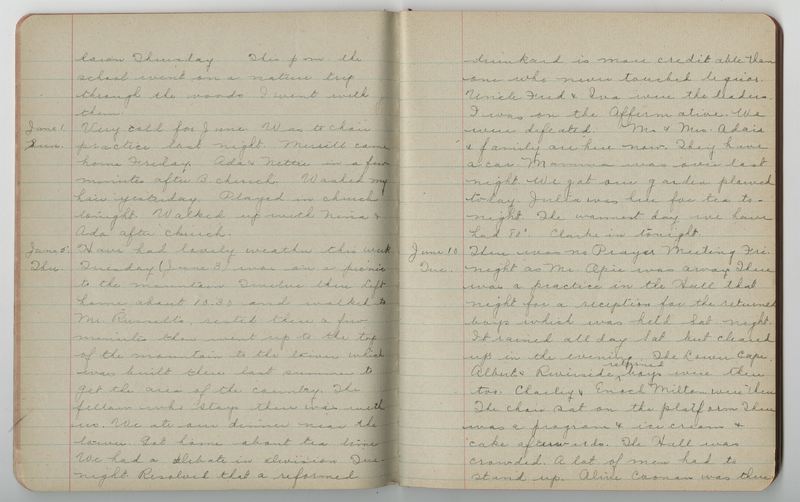 Thursday This p.m. the
school went on a nature trip
through the woods I went with
them.
June 1. Very cold for June. Was to choir
Sun. practice last night. Merrill came
home Friday. Ada & Nettie in a few
minutes after B church. Washed my
hair yesterday. Played in church
tonight. Walked up with Nina &
Ada after church.
June 5. Have had lovely weather this week
Thu. Tuesday (June 3) was on a picnic
to the mountain Twelve there left
home about 10.30 and walked to
Mr. Russell's, rested there a few
minutes then went up to the top
of the mountain to the tower which
was built there last summer to
get the area of the country. The
fellow who stays there was with
us. We ate our dinner near the
tower. Got home about tea time
We had a debate in division Tue.
night Resolved that a reformed
drunkard is more creditable than
one who never touched liquor.
Uncle Fred & Iva were the leaders.
I was on the Affirmative. We
were defeated. Mr. & Mrs. Adair
& family are here now. They have
a car. Mamma was over last
night. We got our garden plowed
today. Julia was here for tea to-
night. The warmest day we have
had 80° Clarke in tonight.
June 10 There was no Prayer Meeting Fri.
Tue. night as Mr. was away There
was a practice in the Hall that
night for a reception for the returned
boys which was held Sat night.
It rained all day Sat but cleared
up in the evening. The Lower Cape,
Albert & Riverside returned boys were there
too. Charley & Enoch Milton were there
The choir sat on the platform There
was a program & ice cream &
cake afterwards. The Hall was
crowded. A lot of men had to
stand up. Coonan was there